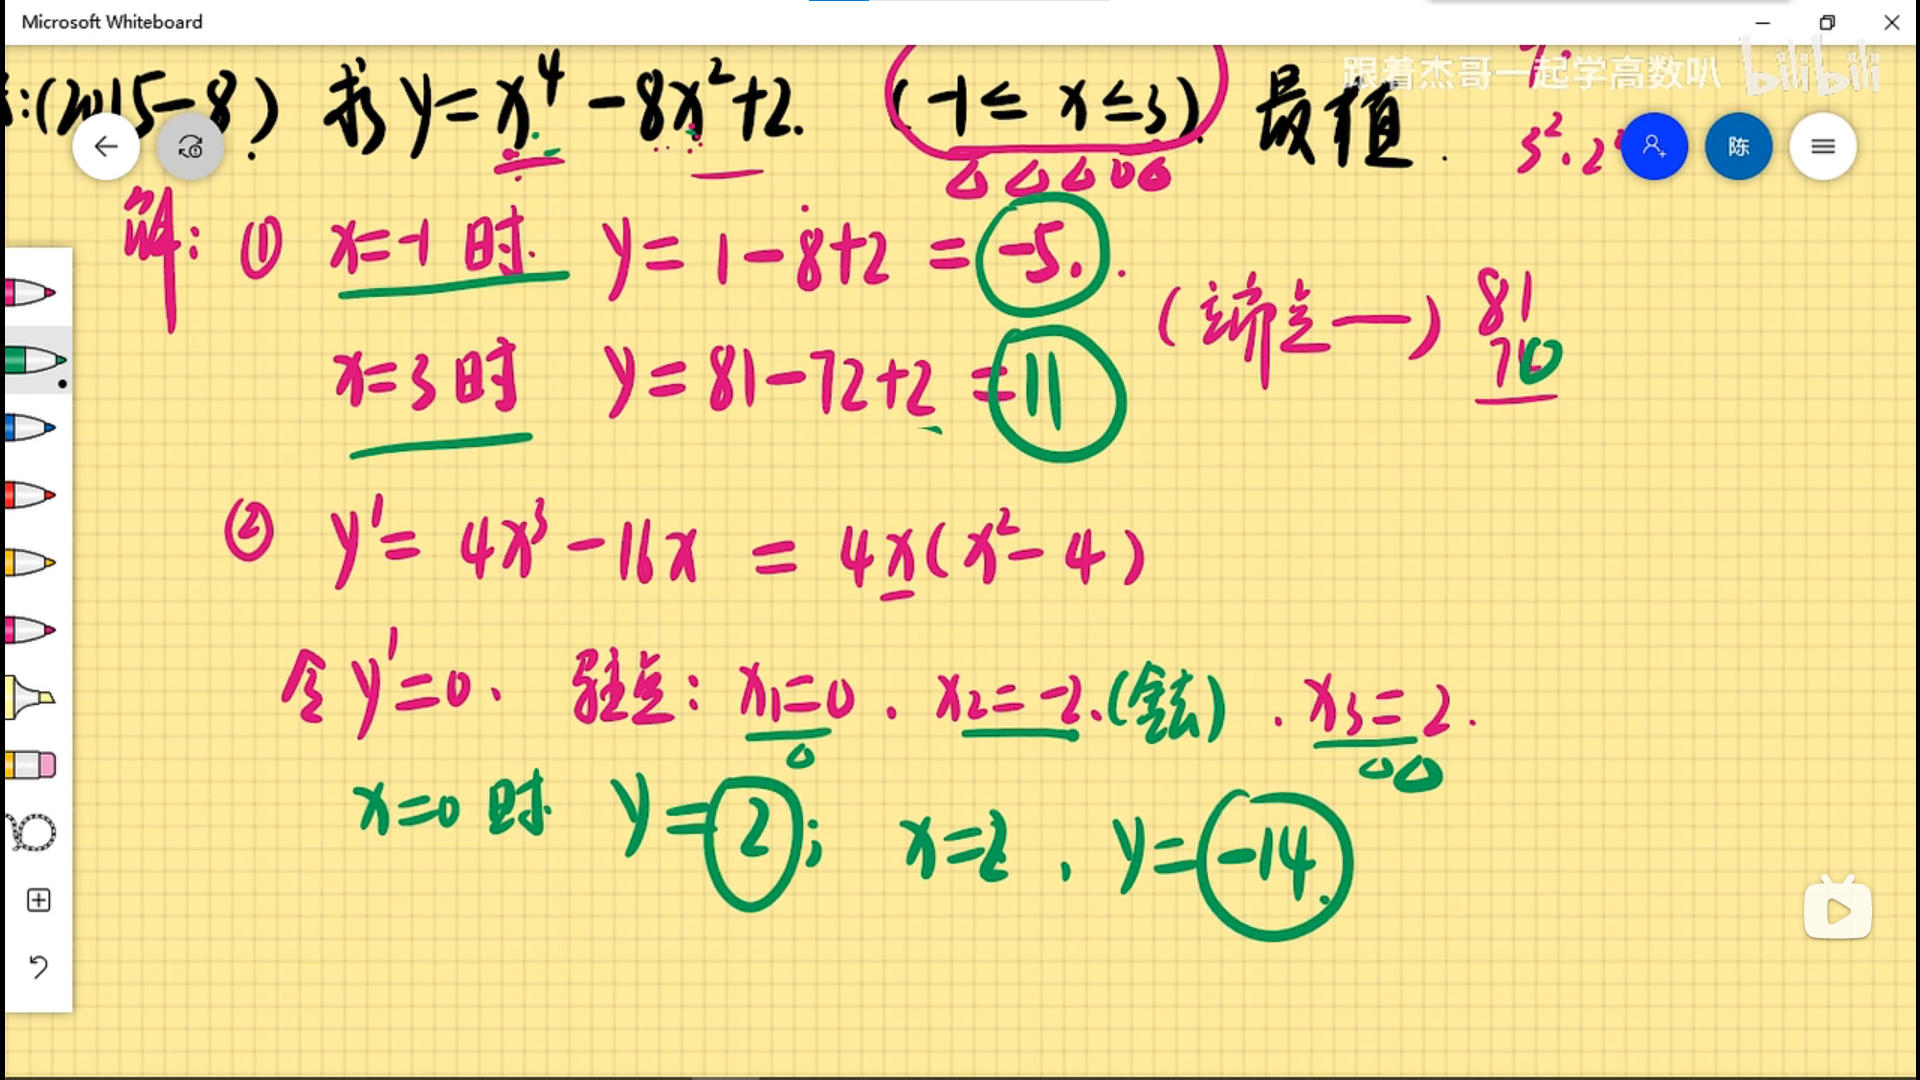 Microsoft Whiteboard
跟着杰哥一起学高数叭 bilibili
:(2015-8) 求y=x⁴-8x²+2. (-1≤x≤3) 最值.
3²·2
陈
解: ① x=-1时. y=1-8+2=-5.
(端点一) 81
x=3时 y=81-72+2=11
② y'=4x³-16x=4x(x²-4)
令y'=0. 驻点: x₁=0. x₂=-2.(舍去). x₃=2.
x=0时 y=2; x=2, y=-14.